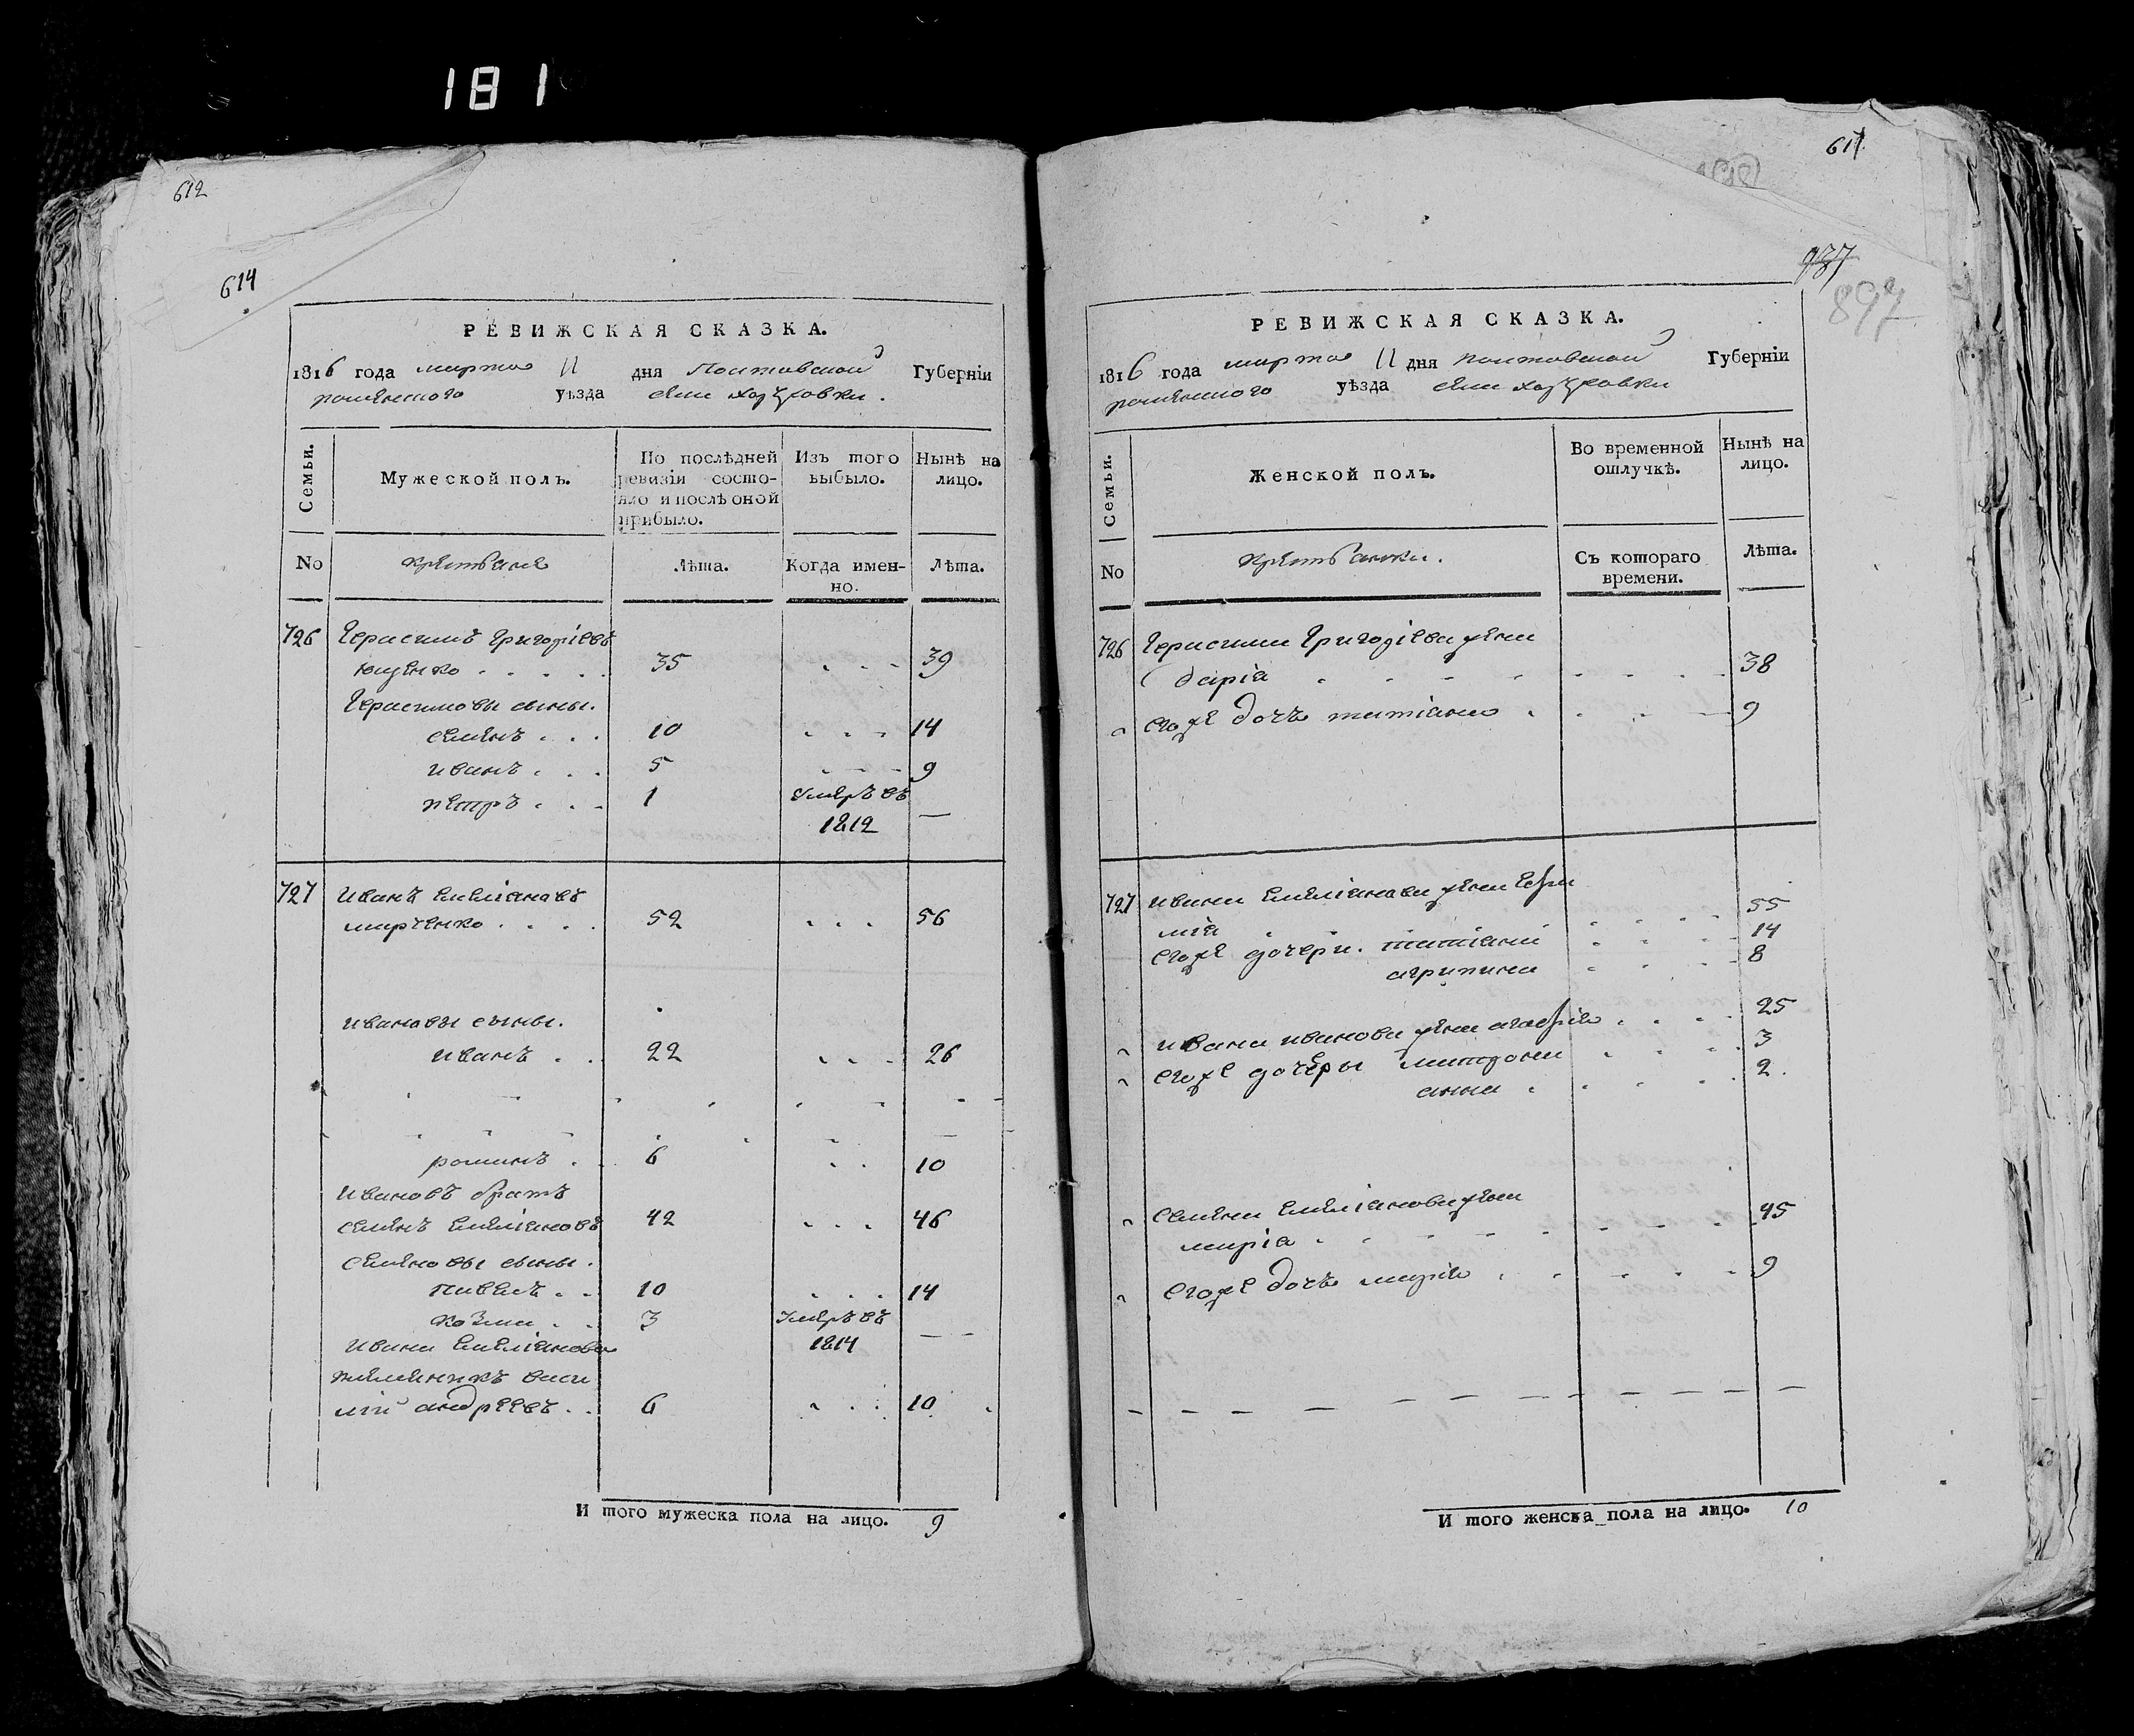 181
612
614
РЕВИЖСКАЯ СКАЗКА.
1816 года марта 11 дня Полтавской Губерніи
роменского уѣзда села
Семьи.
Мужеской полъ.
По послѣдней ревизіи состояло и послѣ оной прибыло.
Изъ того выбыло.
Нынѣ на лицо.
No
Лѣта.
Когда именно.
Лѣта.
726 Герасимъ Григоріевъ
ющенко 35 39
Герасимовы сыны.
семенъ 10 14
иванъ 5 9
петръ 1 умеръ въ
1812 —
727 Иванъ емеліановъ
марченко 52 56
ивановы сыны.
иванъ 22 26
романъ 6 10
ивановъ братъ
семенъ емеліановъ 42 46
семеновы сыны.
павелъ 10 14
козма 3 умеръ въ
ивана емеліанова 1814 —
племенникъ васи
лій андреевъ 6 10
И того мужеска пола на лицо. 9
611
937
897
РЕВИЖСКАЯ СКАЗКА.
1816 года марта 11 дня полтавской Губерніи
роменского уѣзда села
Семьи.
Женской полъ.
Во временной отлучкѣ.
Нынѣ на лицо.
No
Съ котораго времени.
Лѣта.
726 Герасима Григоріева жена
дарія 38
егоже дочь татіана 9
727 ивана емеліанова жена евфи
мія 55
егоже дочери. татіана 14
агрипина 8
ивана иванова жена агафія 25
егоже дочеры матрона 3
анна 2
семена емеліанова жена
марія 45
егоже дочь марія 9
И того женска пола на лицо. 10